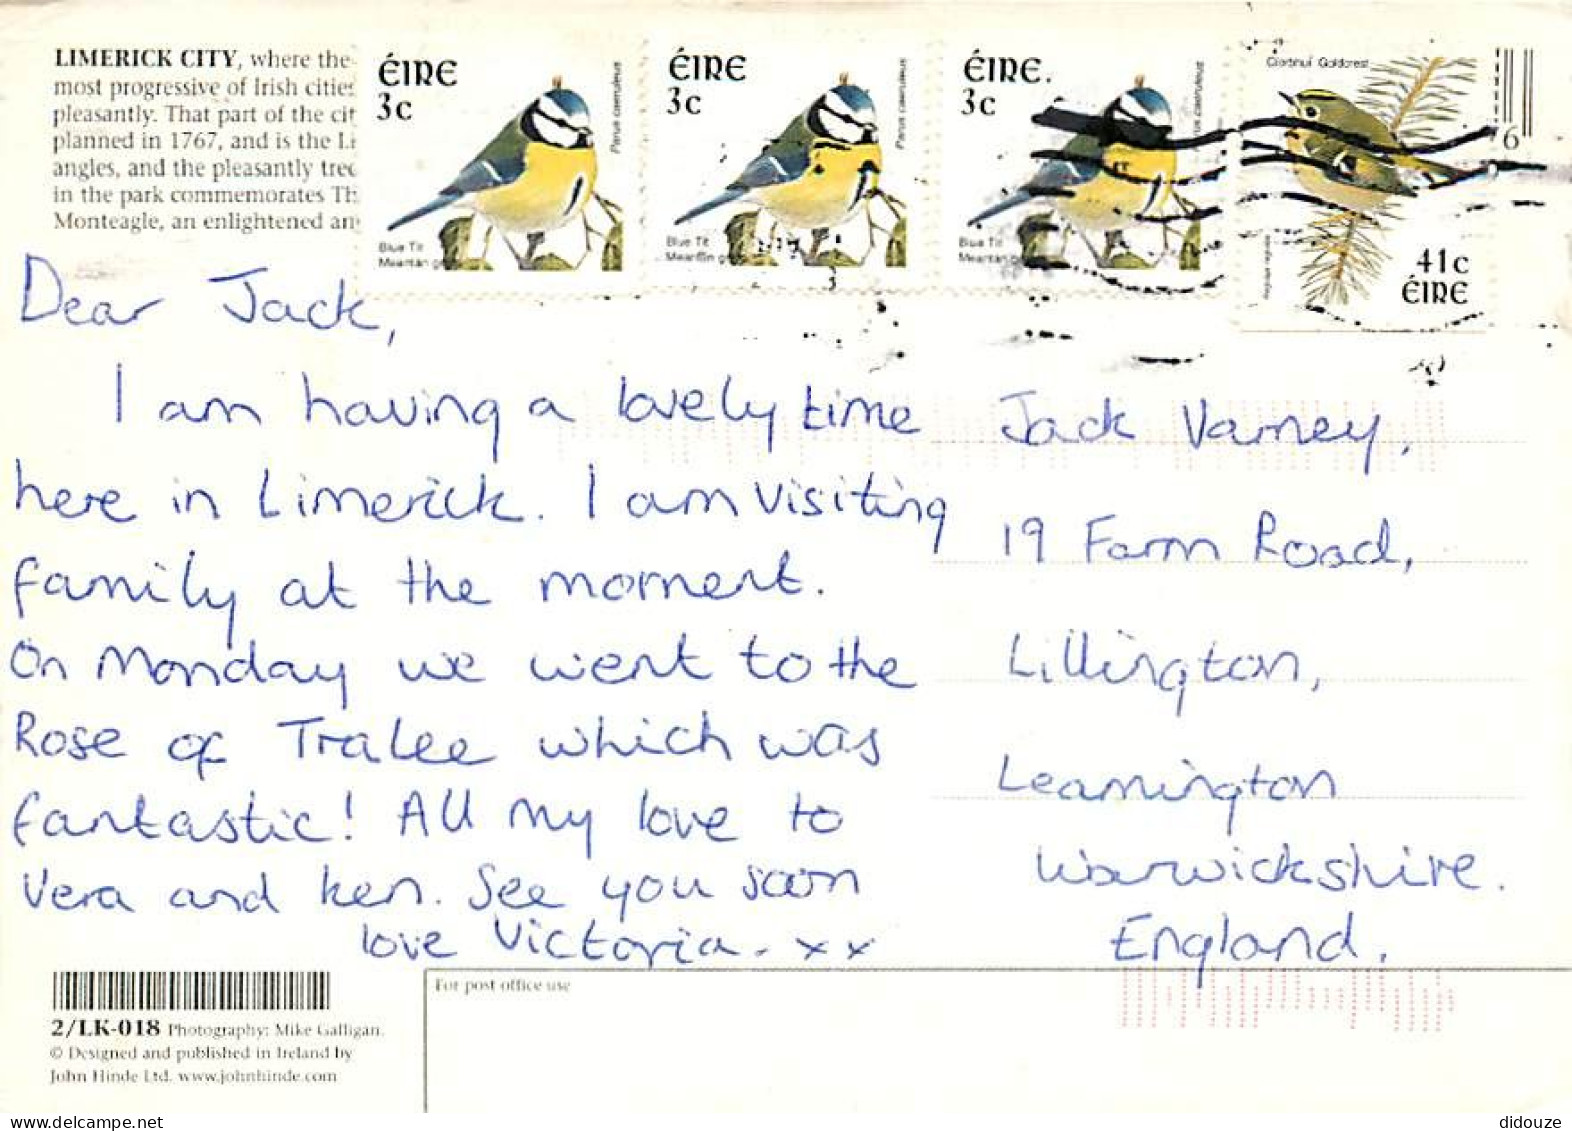 LIMERICK CITY, where the
most progressive of Irish cities
pleasantly. That part of the cit
planned in 1767, and is the Li
angles, and the pleasantly tree
in the park commemorates Th
Monteagle, an enlightened an
ÉIRE
3c
Parus caeruleus
Blue Tit
Meantán
ÉIRE
3c
Parus caeruleus
Blue Tit
Meantán
ÉIRE.
3c
Parus caeruleus
Blue Tit
Meantán
Goldcrest
6
41c
ÉIRE
Dear Jack,
I am having a lovely time
here in Limerick. I am visiting
family at the moment.
On Monday we went to the
Rose of Tralee which was
fantastic! All my love to
Vera and Ken. See you soon
love Victoria. xx
Jack Varney,
19 Farm Road,
Lillington,
Leamington
Warwickshire.
England.
For post office use
2/LK-018 Photography: Mike Galligan.
© Designed and published in Ireland by
John Hinde Ltd. www.johnhinde.com
didouze